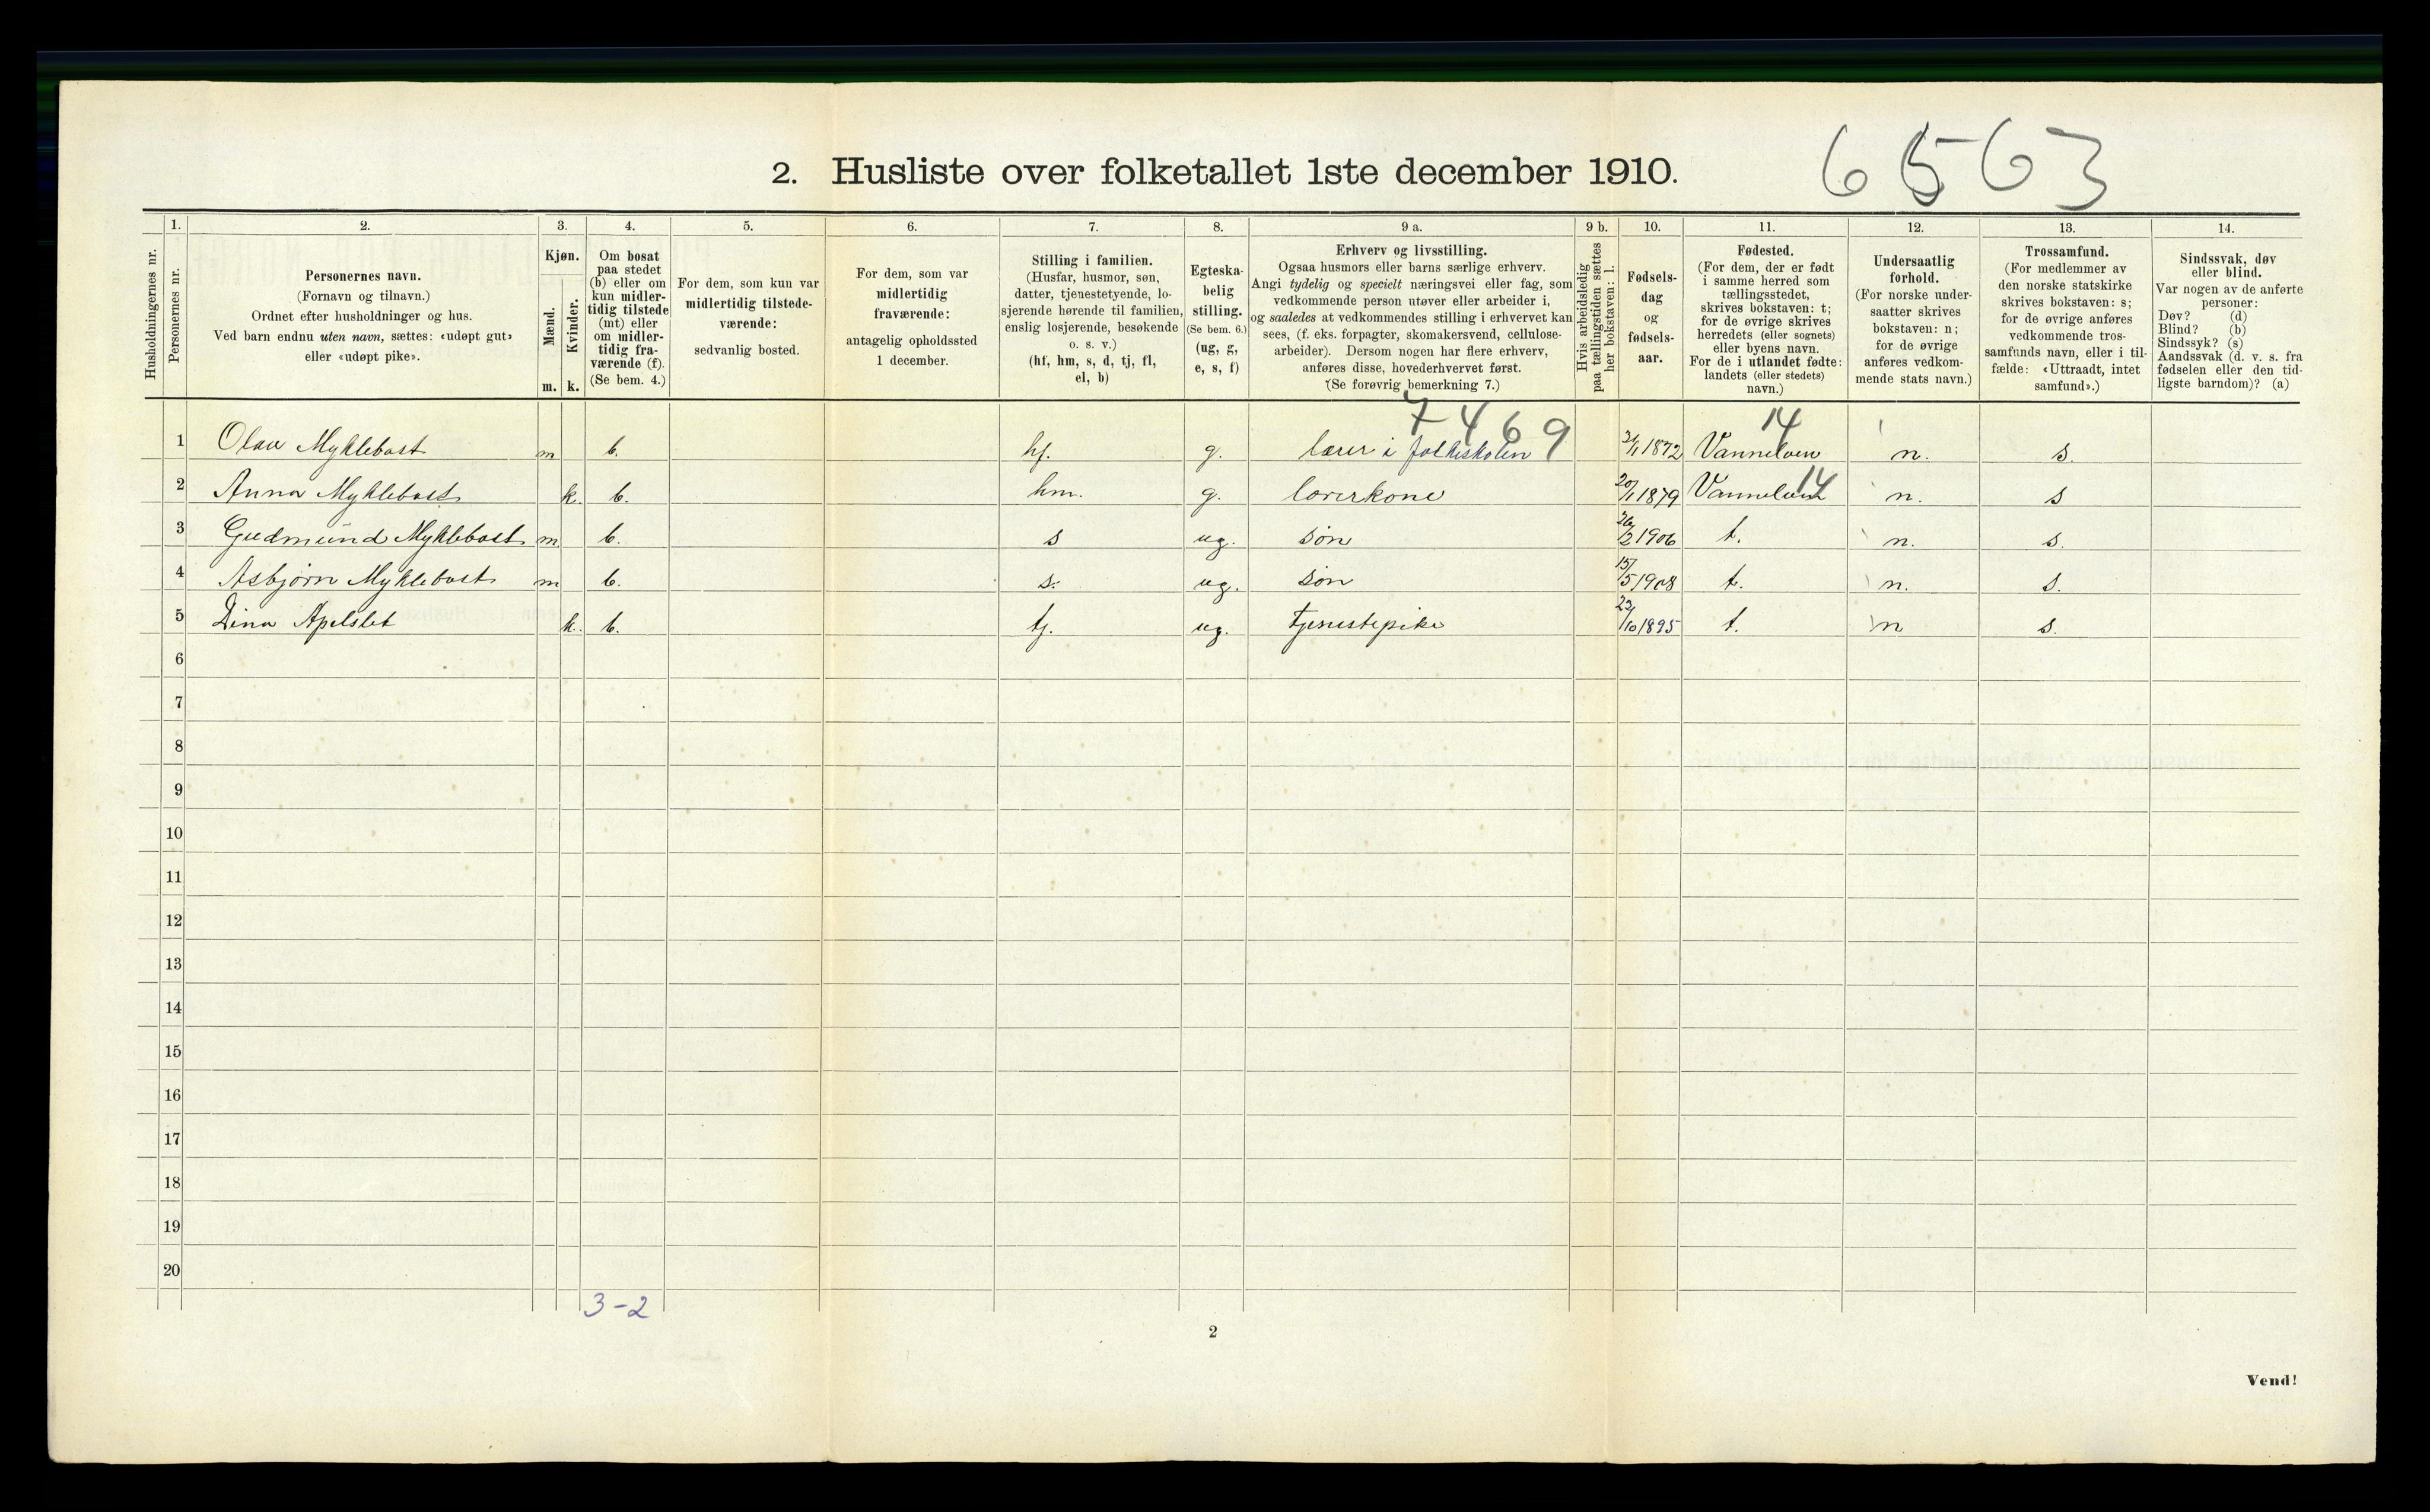 6563
2. Husliste over folketallet 1ste december 1910.
Husholdningernes nr.
1.
Personernes nr.
2.
Personernes navn.
(Fornavn og tilnavn.)
Ordnet efter husholdninger og hus.
Ved barn endnu uten navn, sættes: «udøpt gut»
eller «udøpt pike».
3.
Kjøn.
Mænd.
m.
Kvinder.
k.
4.
Om bosat
paa stedet
(b) eller om
kun midler-
tidig tilstede
(mt) eller
om midler-
tidig fra-
værende (f).
(Se bem. 4.)
5.
For dem, som kun var
midlertidig tilstede-
værende:
sedvanlig bosted.
6.
For dem, som var
midlertidig
fraværende:
antagelig opholdssted
1 december.
7.
Stilling i familien.
(Husfar, husmor, søn,
datter, tjenestetyende, lo-
sjerende hørende til familien,
enslig losjerende, besøkende
o. s. v.)
(hf, hm, s, d, tj, fl,
el, b)
8.
Egteska-
belig
stilling.
(Se bem. 6.)
(ug, g,
e, s, f)
9 a.
Erhverv og livsstilling.
Ogsaa husmors eller barns særlige erhverv.
Angi tydelig og specielt næringsvei eller fag, som
vedkommende person utøver eller arbeider i,
og saaledes at vedkommendes stilling i erhvervet kan
sees, (f. eks. forpagter, skomakersvend, cellulose-
arbeider). Dersom nogen har flere erhverv,
anføres disse, hovederhvervet først.
(Se forøvrig bemerkning 7.)
9 b.
Hvis arbeidsledig
paa tællingstiden sættes
her bokstaven: l.
10.
Fødsels-
dag
og
fødsels-
aar.
11.
Fødested.
(For dem, der er født
i samme herred som
tællingsstedet,
skrives bokstaven: t;
for de øvrige skrives
herredets (eller sognets)
eller byens navn.
For de i utlandet fødte:
landets (eller stedets)
navn.)
12.
Undersaatlig
forhold.
(For norske under-
saatter skrives
bokstaven: n;
for de øvrige
anføres vedkom-
mende stats navn.)
13.
Trossamfund.
(For medlemmer av
den norske statskirke
skrives bokstaven: s;
for de øvrige anføres
vedkommende tros-
samfunds navn, eller i til-
fælde: «Uttraadt, intet
samfund».)
14.
Sindssvak, døv
eller blind.
Var nogen av de anførte
personer:
Døv? (d)
Blind? (b)
Sindssyk? (s)
Aandssvak (d. v. s. fra
fødselen eller den tid-
ligste barndom)? (a)
7469 14
1 Olav Myklebast m b. hf. g. lærer i folkeskolen 1872 Vannelven n. s.
14
2 Anna Myklebost k. b. hm. g. lærerkone 20/1 1879 Vannelven n. s
3 Gudmund Myklebost m b. s ug. søn 26/2 1906 t. n. s.
4 Asbjørn Myklebost m b. s. ug. søn 15/5 1908 t. n. s.
5 Dina Apelset k. b. tj. ug. tjenestepike 22/10 1895 t. n s.
6
7
8
9
10
11
12
13
14
15
16
17
18
19
20
3-2
2
Vend!